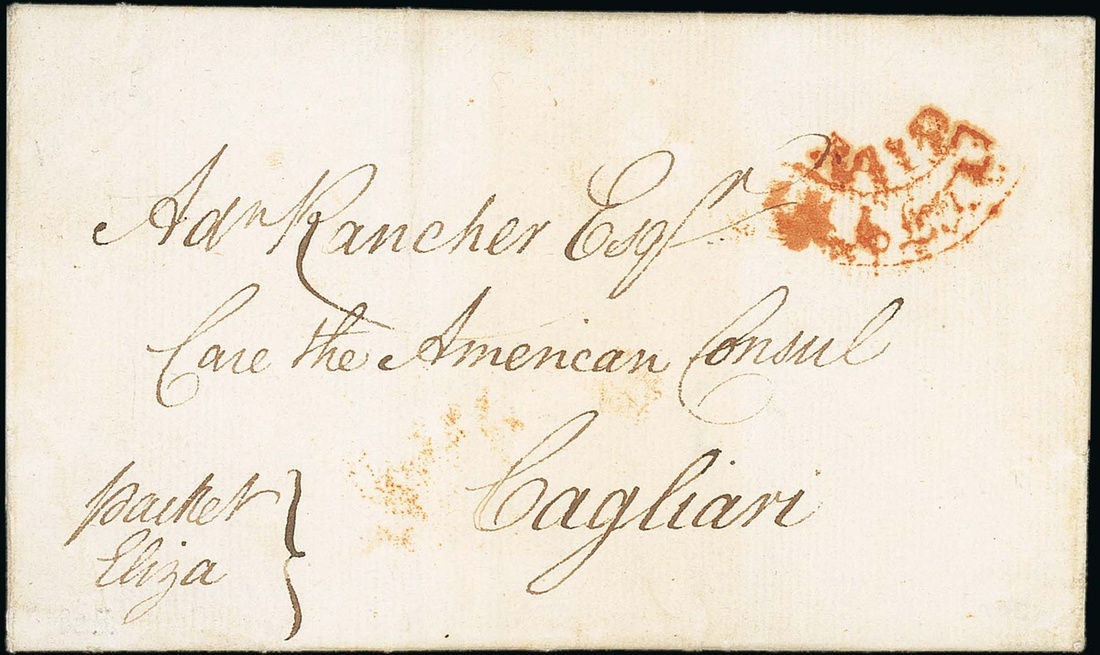 Adn Rancher Esqr
Care the American Consul
Cagliari
packet
Eliza